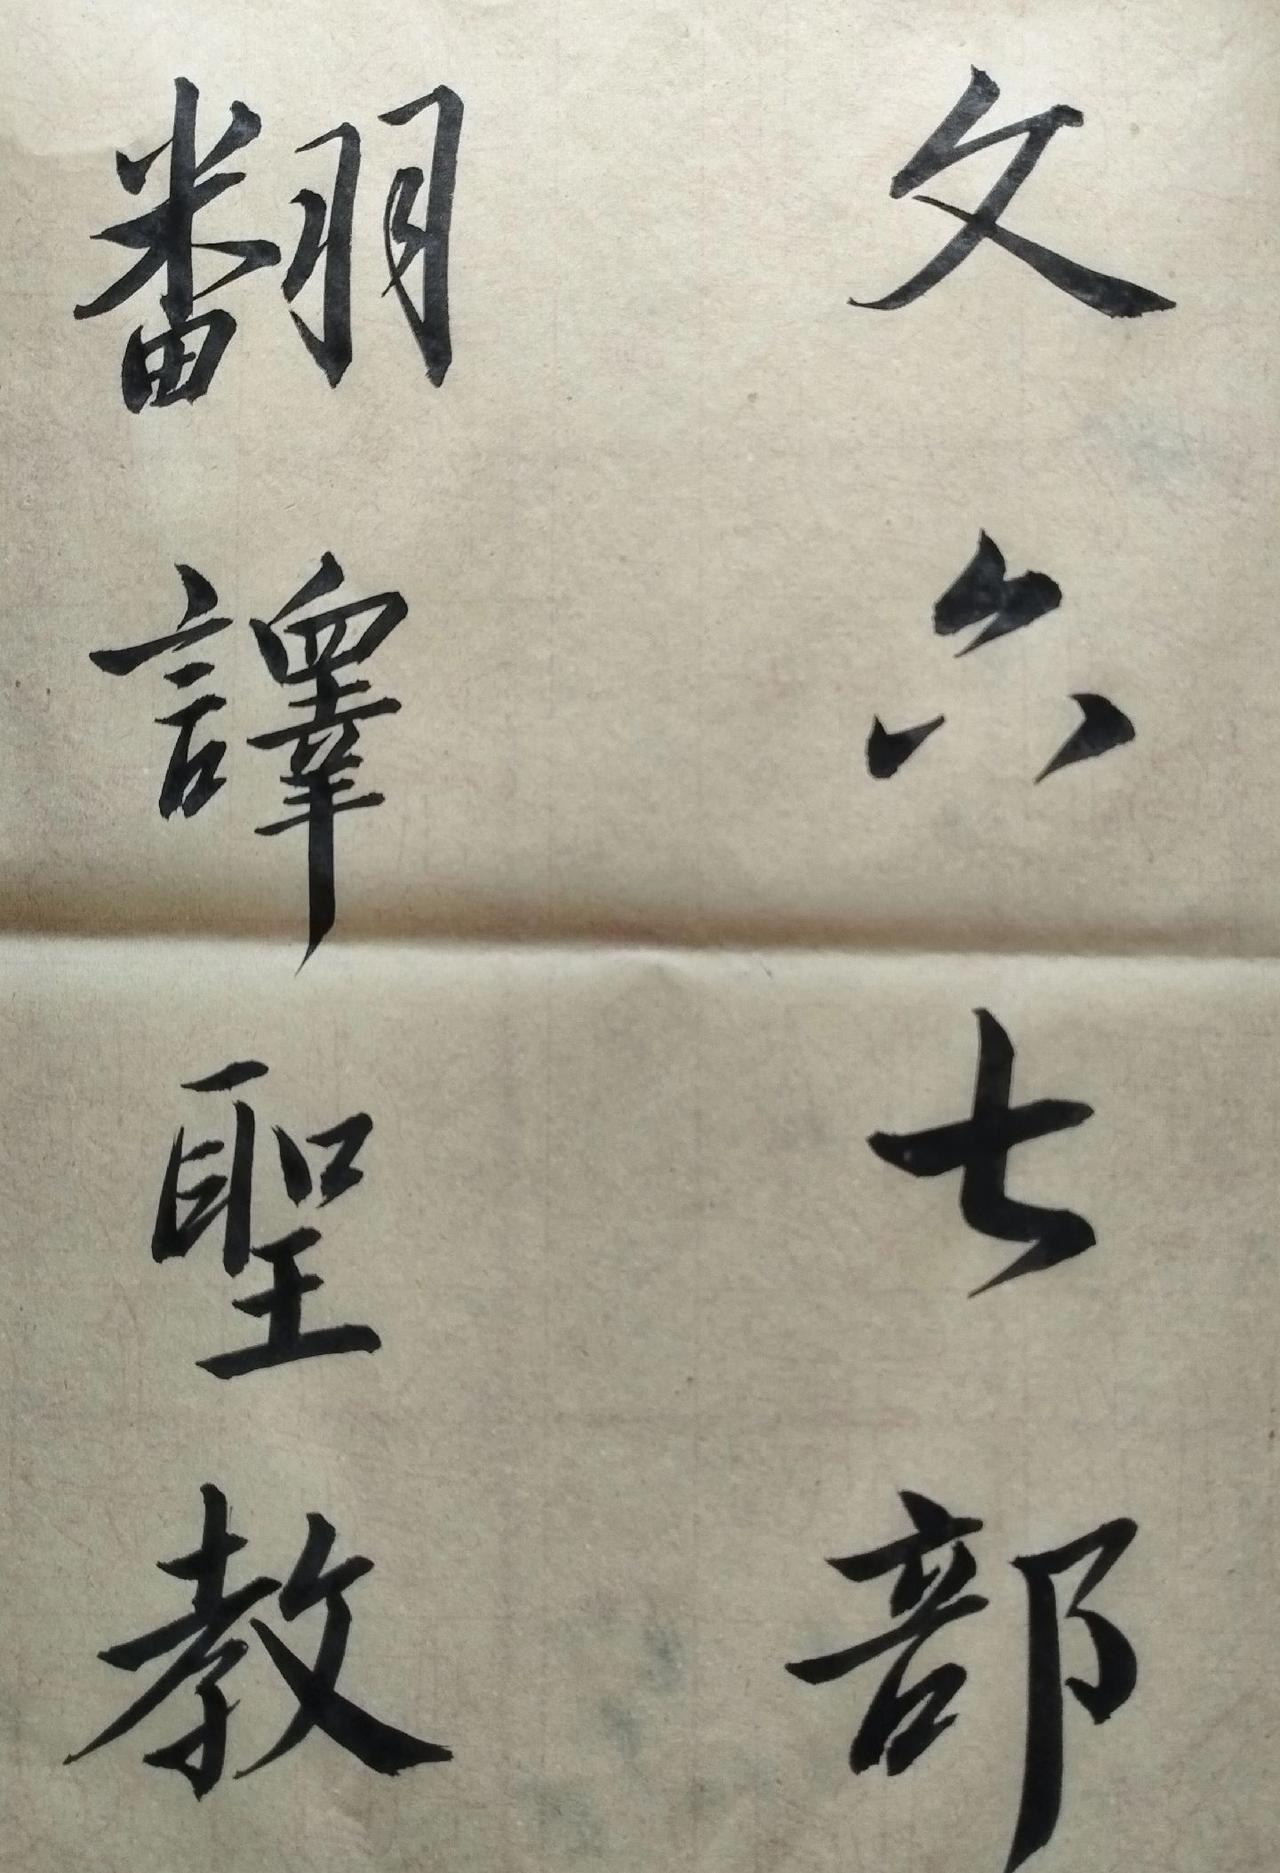 文六七部
翻譯聖教